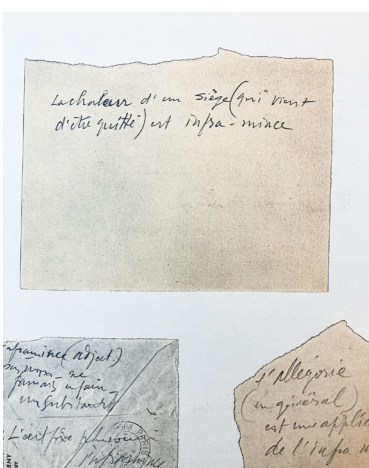 La chaleur d'un siège (qui vient
d'être quitté) est infra-mince
inframince (adject.)
pas nom - ne
jamais en faire
un substantif
L'allégorie
(en général)
est une applic
de l'infra m